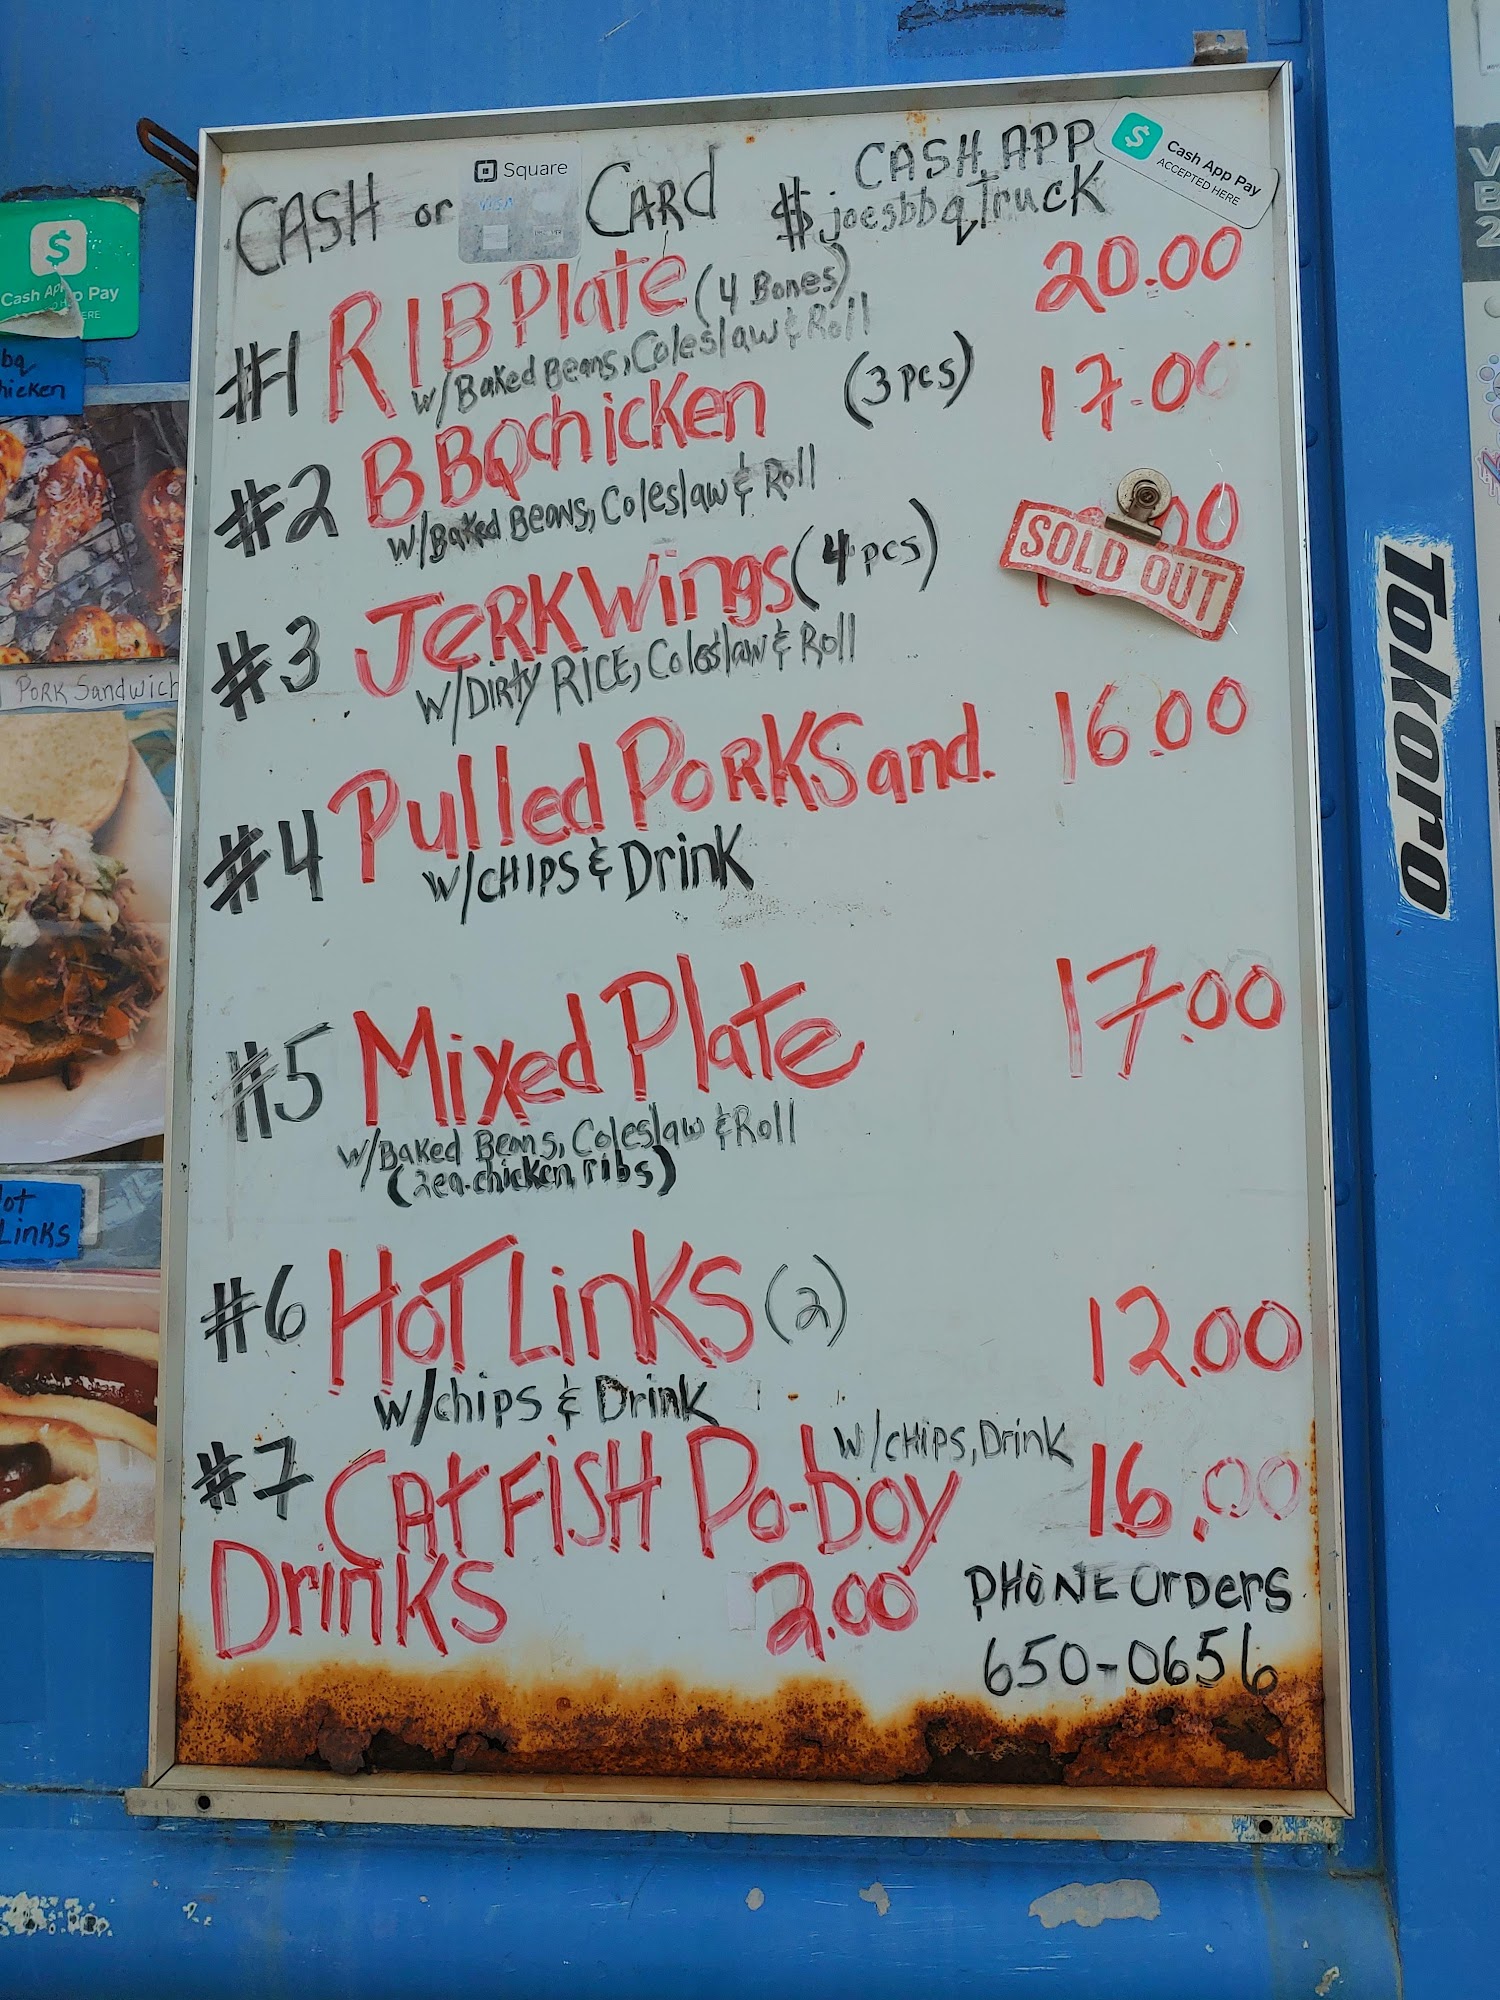 CASH or Square CARD $ CASH APP
joesbbqTruck
VISA
Cash App Pay
ACCEPTED HERE
#1 RIB Plate (4 Bones) 20.00
w/Baked Beans, Coleslaw & Roll
#2 BBQ chicken (3 pcs) 17.00
w/Baked Beans, Coleslaw & Roll
#3 JERK Wings (4 pcs)
SOLD OUT
w/Dirty RICE, Coleslaw & Roll
#4 Pulled PORK Sand. 16.00
w/CHIPS & Drink
#5 Mixed Plate 17.00
w/Baked Beans, Coleslaw & Roll
(2ea. chicken, ribs)
#6 HOT LINKS (2) 12.00
w/chips & Drink
#7 CATFISH Po-boy w/CHIPS, Drink 16.00
Drinks 2.00
PHONE OrDers
650-0656
Cash App Pay
PORK Sandwich
Links
Tokoro